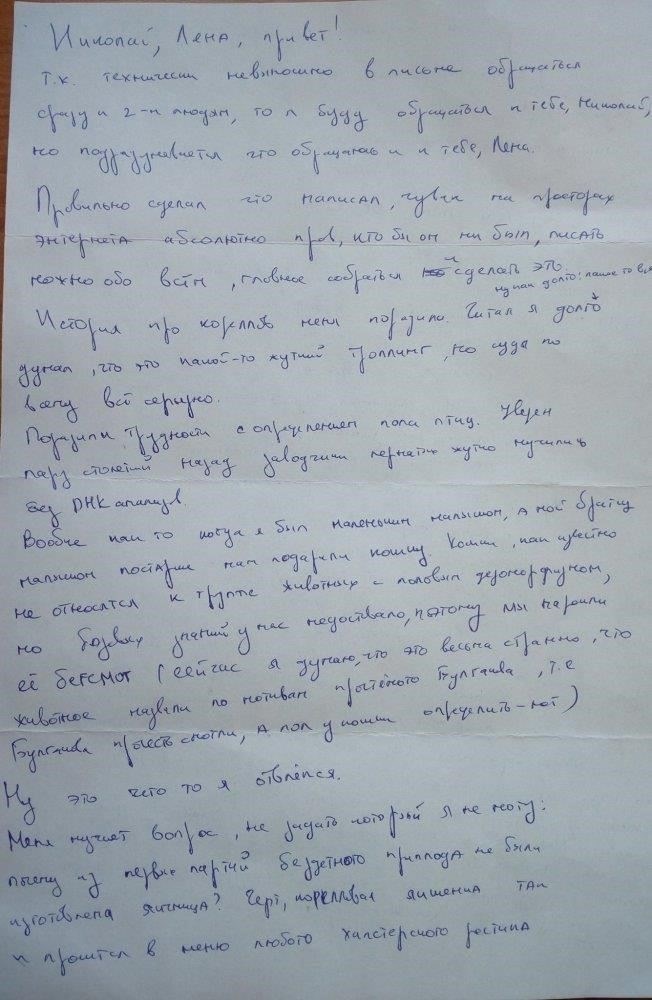 Николай, Лена, привет!
т.к. технически невозможно в письме обращаться
сразу к 2-м людям, то я буду обращаться к тебе, Николай,
но подразумевается что обращаюсь и к тебе, Лена.
Правильно сделал что написал, чувак на просторах
энтернета абсолютно прав, кто бы он ни был, писать
можно обо всём, главное собраться и сделать это.
История про корелл меня поразила. Читал я долго
ну как долго: какое то вр
думал, что это какой-то жуткий троллинг, но судя по
всему всё серьёзно.
Поразили трудности с определением пола птиц. Уверен
пару столетий назад заводчики пернатых жутко мучились
без ДНК анализов.
Вообще как то когда я был маленьким малышом, а мой братец
малышом постарше нам подарили кошку. Кошки, как известно
не относятся к группе животных с половым дезоморфизмом,
но базовых знаний у нас недоставало, поэтому мы нарекли
её Бегемот (сейчас я думаю, что это весьма странно, что
животное назвали по мотивам прочтёного Булгакова, т.е
Булгакова прочесть смогли, а пол у кошки определить-нет)
Ну это чего то я отвлёкся.
Меня мучает вопрос, не задать который я не могу:
почему из первых партий бездетного приплода не были
изготовлена яичница? Чёрт, корелловая яишенка так
и просится в меню любого хипстерского рестика